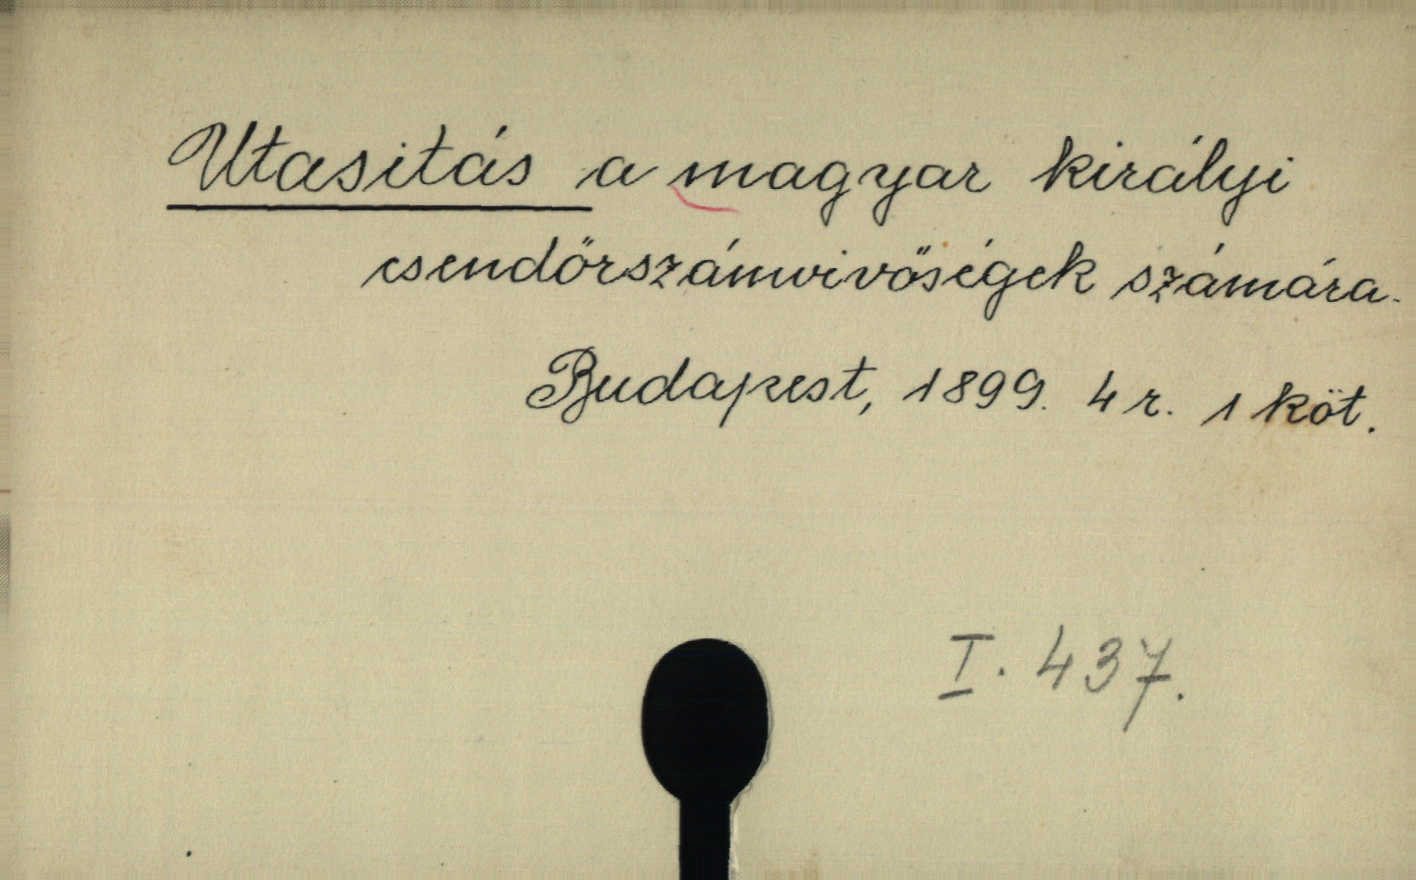 Utasitás a magyar királyi
csendőrszámvivőségek számára.
Budapest, 1899. 4 r. 1 köt.
I. 437.